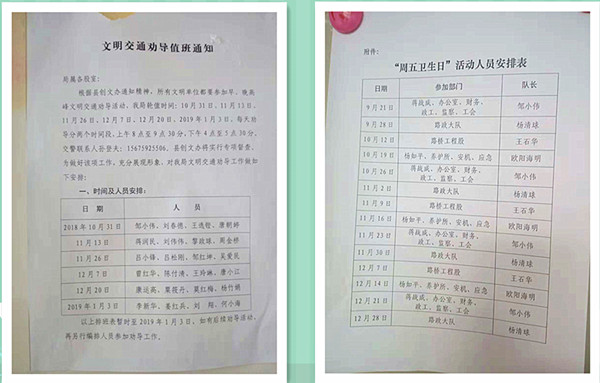 文明交通劝导值班通知
局属各股室:
根据县创文办通知精神,所有文明单位都要参加早、晚高
峰文明交通劝导活动,我局轮值时间:10月31日、11月13日、
11月26日、12月7日、12月20日、2019年1月3日,每天劝
导分两个时间段,上午8点至9点30分,下午4点至5点30分,
交警联系人孙登大:15675925506,县创文办将实行专项督查,
为做好该项工作,充分展现形象,对我局文明交通劝导工作做如
下安排:
一、时间及人员安排:
日 期 人 员
2018年10月31日 邹小伟、刘春德、王选松、唐朝晖
11月13日 蒋润民、刘伟伟、黎政球、周金桥
11月26日 吕小锋、吕松刚、邹红坤、吴爱民
12月7日 曾红华、陈付清、王玲琳、唐小江
12月20日 康运高、粟筱丹、莫红梅、杨竹娥
2019年1月3日 李颖华、姜红兵、刘 翔、何小海
以上排班表暂时至2019年1月3日,如有后续劝导活动,
再另行编排人员参加劝导工作。
附件:
“周五卫生日”活动人员安排表
日期 参加部门 队长
9月21日 蒋战成、办公室、财务、
政工、监察、工会 邹小伟
9月28日 路政大队 杨清球
10月12日 路桥工程股 王石华
10月19日 杨如平、养护所、安机、应急 欧阳海明
10月26日 蒋战成、办公室、财务、
政工、监察、工会 邹小伟
11月2日 路政大队 杨清球
11月9日 路桥工程股 王石华
11月16日 杨如平、养护所、安机、应急 欧阳海明
11月23日 蒋战成、办公室、财务、
政工、监察、工会 邹小伟
11月30日 路政大队 杨清球
12月7日 路桥工程股 王石华
12月14日 杨如平、养护所、安机、应急 欧阳海明
12月21日 蒋战成、办公室、财务、
政工、监察、工会 邹小伟
12月28日 路政大队 杨清球